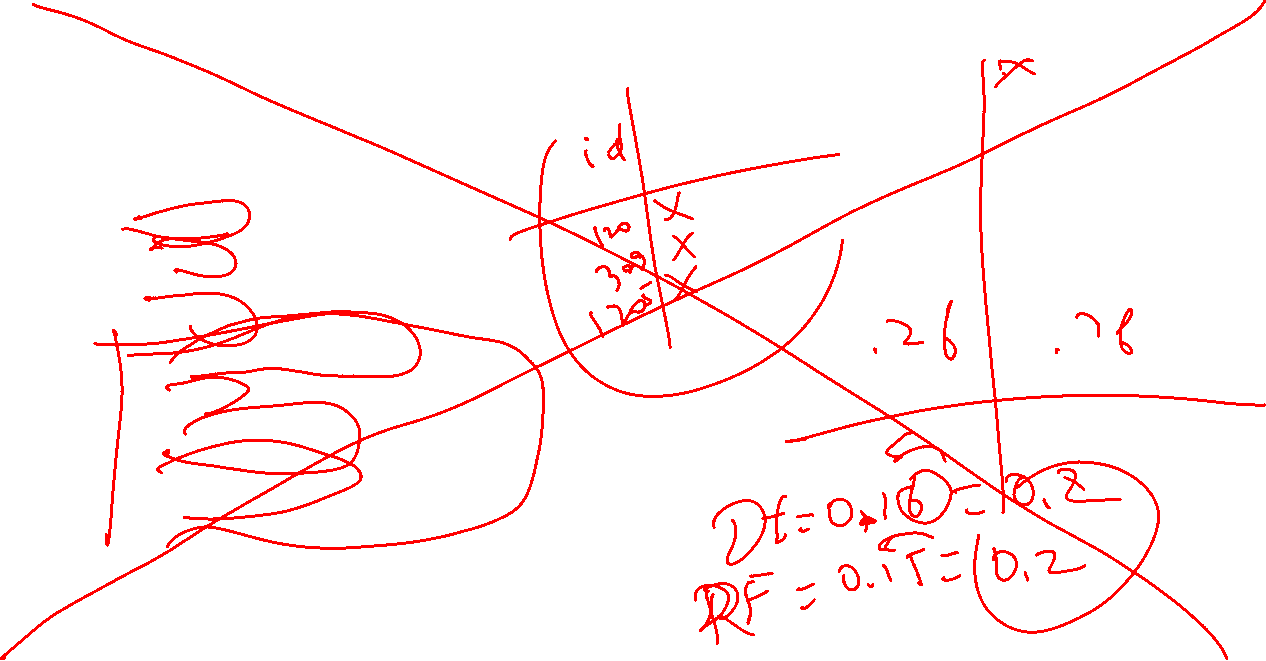 x
id
120 x
300 x
120 x
.26 .76
Dt=0.16=0.2
RF=0.15=0.2